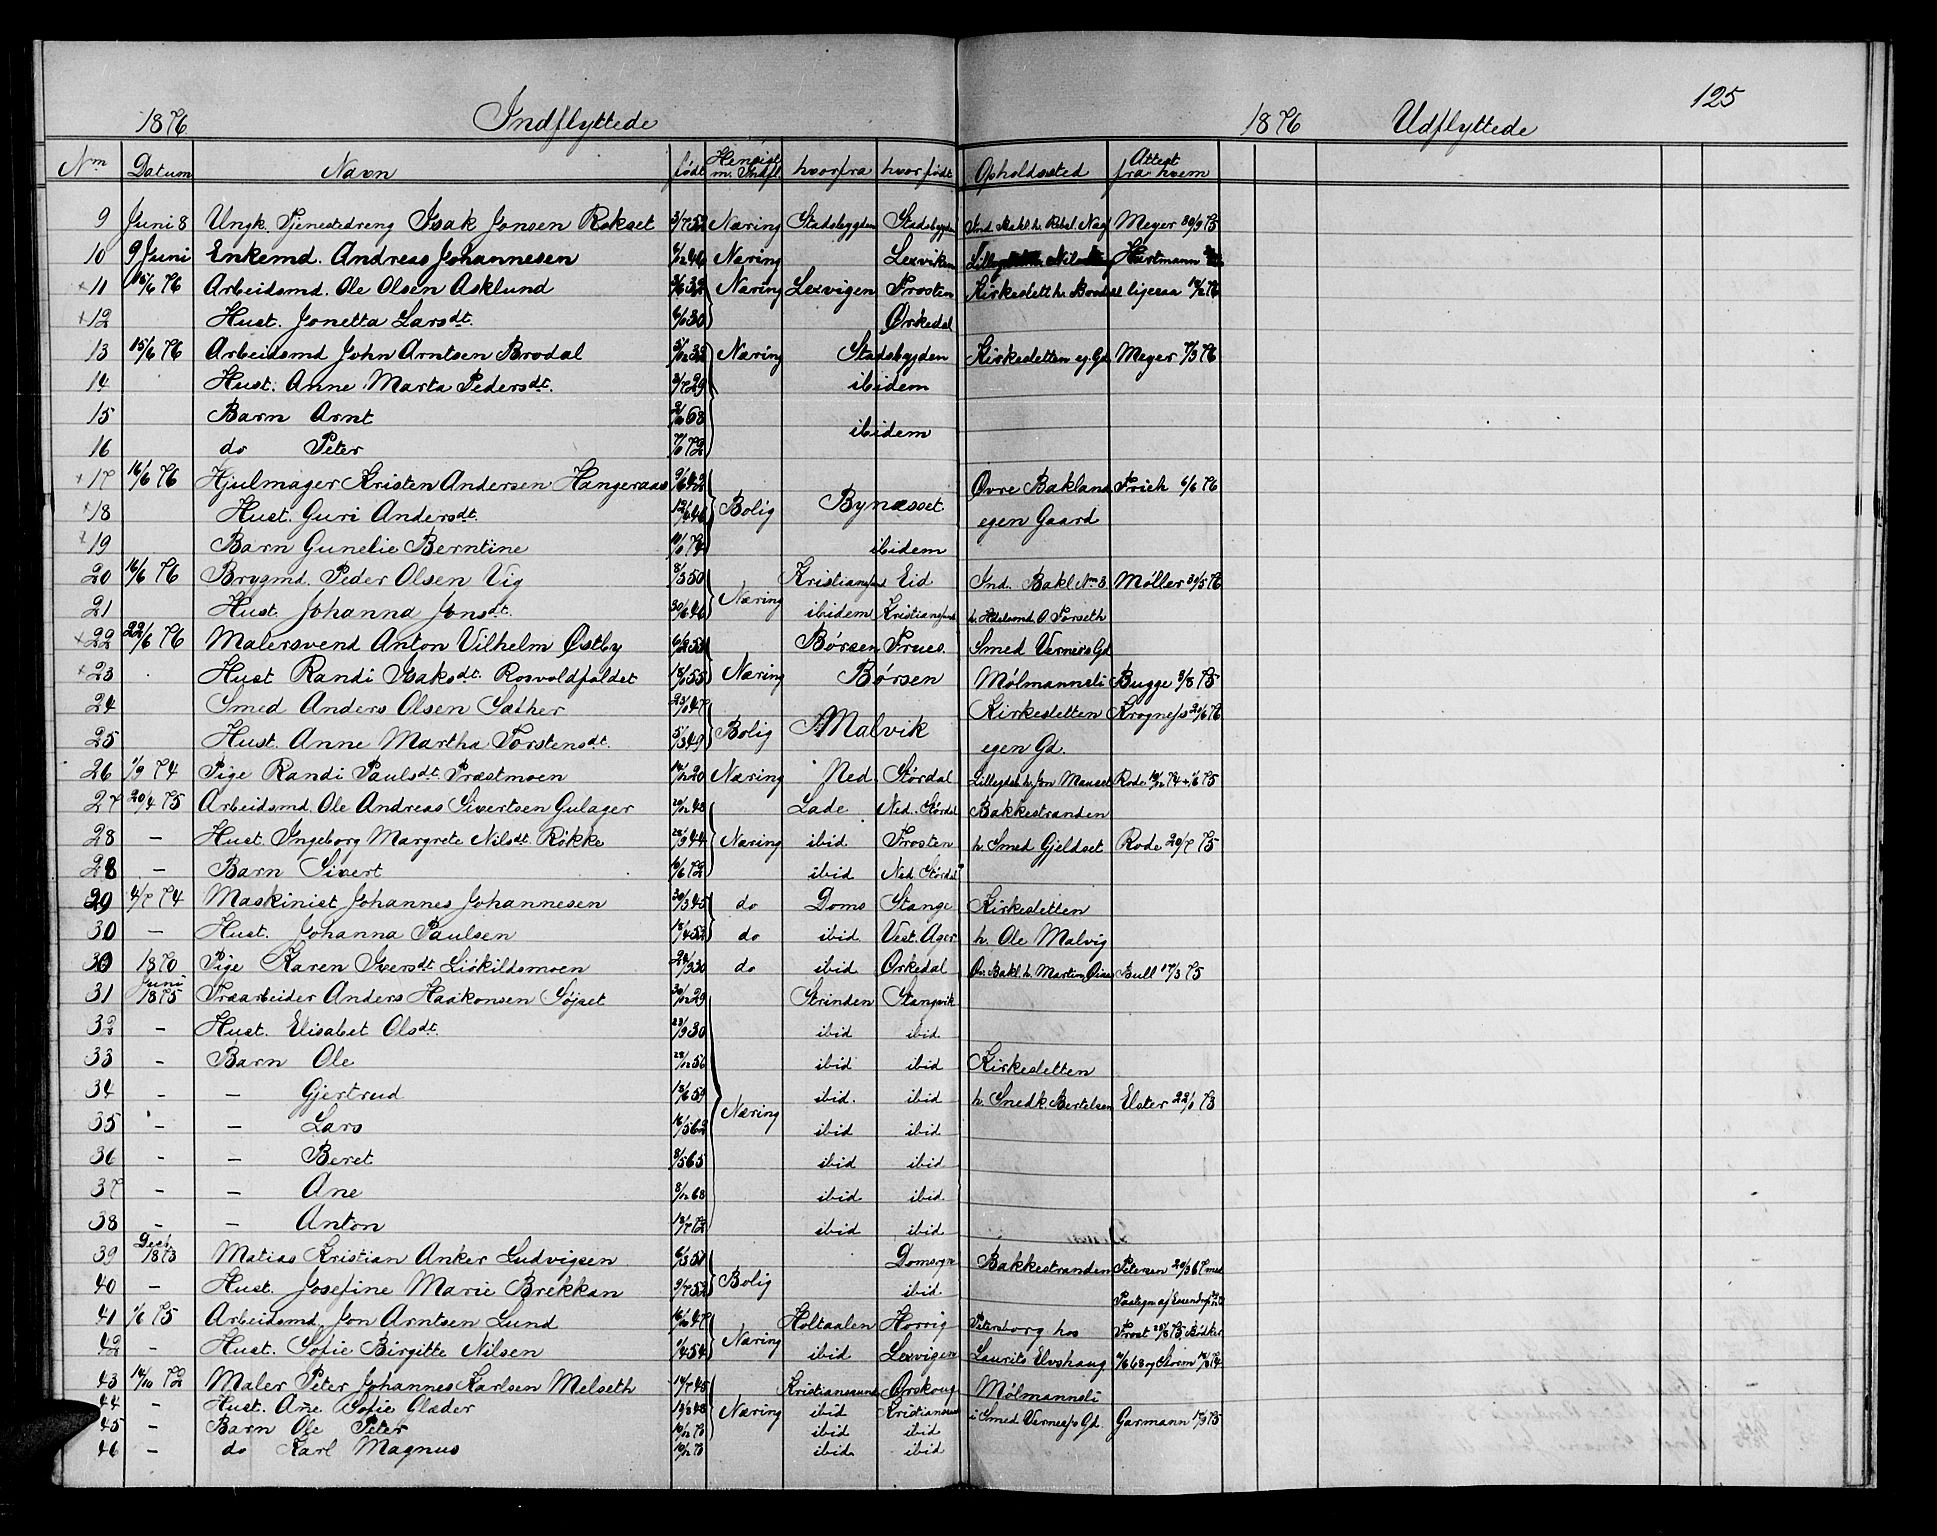 125
1876 Indflyttede 1876 Udflyttede
Nm Datum Navn født Hensigt m. Indfl. hvorfra hvor født Opholdssted Attest fra hvem
9 Juni 8 Ungk. Tjenestedreng Isak Jonsen Rokset 3/7 52 Næring Stadsbygden Stadsbygden Meyer 30/9 75
10 9 Juni Enkemd. Andreas Johannesen Næring Lexviken Hartmann
+11 15/6 76 Arbeidsmd. Ole Olsen Asklund Næring Lexvigen Frosten Kirkeslett h. Brodal ligesaa
+12 Hust. Jonetta Larsdt. 6/6 30 Ørkedal
13 15/6 76 Arbeidsmd John Arntsen Brodal Næring Stadsbygden Kirkesletten eg. Gd. Meyer 7/3 76
14 Hust. Anne Marta Pedersdt. 2/7 29 ibidem
15 Barn Arnt
16 do Peter ibidem
+17 16/6 76 Hjulmager Kristen Andersen Hangeraas Øvre Bakland Frich 6/6 76
+18 Hust. Guri Andersdt. Bolig Bynæsset egen Gaard
+19 Barn Gunelie Berntine ibidem
20 16/6 76 Brygmd. Peder Olsen Vig 8/3 50 Kristiansund Eid Ind. Bakl. Nm 3 Møller 30/5 76
21 Hust. Johanna Jonsdt. 30/6 46 Næring ibidem Kristiansund O. Forseth
+22 22/6 76 Malersvend Anton Vilhelm Østby Børsen Frues. Smed Verners Gd
+23 Hust Randi Isaksdt. Rosvoldfaldet Næring Børsen Mølmannsli Bugge 3/8 75
24 Smed Anders Olsen Sæther Kirkesletten Krogness 20/6 76
25 Hust. Anne Martha Torstensdt. 5/3 49 Bolig Malvik egen Gd.
26 1/9 74 Pige Randi Paulsdt. Præstmoen 14/12 20 Næring Ned. Størdal Rode
27 20/4 75 Arbeidsmd. Ole Andreas Sivertsen Gulager 20/12 48 Lade Ned. Størdal Bakkestranden
28 — Hust. Ingeborg Margrete Nilsdt. Røkke 28/9 44 Næring ibid Frosten h. Smed Gjeldset Rode 20/7 75
28 — Barn Sivert 10/6 72 ibid Ned. Størdal
29 4/7 74 Maskinist Johannes Johannesen 30/3 45 do Doms Stange Kirkesletten
30 — Hust. Johanna Paulsen do ibid Vest. Ager h. Ole Malvig
30 1870 Pige Karen Iversdt. Liskildsmoen do ibid Orkedal Bull 17/3 75
31 Juni 1875 Træarbeider Anders Haakonsen Søjset Strinden Stangvik
32 — Hust. Elisabet Olsdt. 23/9 30 ibid ibid
33 — Barn Ole 28/12 56 ibid ibid Kirkesletten
34 — — Gjertrud 18/6 59 ibid. ibid h. Snedk. Bertelsen Elster 22/1 73
35 — — Lars 16/5 62 Næring ibid ibid
36 — — Beret 8/5 65 ibid ibid
37 — — Ane 8/12 68 ibid ibid
38 — — Anton 18/7 72 ibid ibid
39 Decb 1873 Matias Kristian Anker Ludvigsen Domsogn Bakkestranden Petersen 20/3 67 med
40 — Hust. Josefine Marie Brekkan 9/7 52 Bolig ibid.
41 1/6 75 Arbeidsmd. Jon Arntsen Lund 16/10 47 Holtaalen Horrig Petersborg hos Frost
42 — Hust. Sofie Birgitte Nilsen 1/4 54 Næring ibid Lexvigen Laurits Elvshaug
43 14/10 72 Maler Peter Johannes Karlsen Melseth 14/7 45 Kristianssund Ørskoug Mølmannsli
44 — Hust. Ane Sofie Olæder Næring ibid Kristianssund i Smed Verness Gd. Garmann
45 — Barn Ole Peter ibid ibid
46 — do Karl Magnus ibid ibid